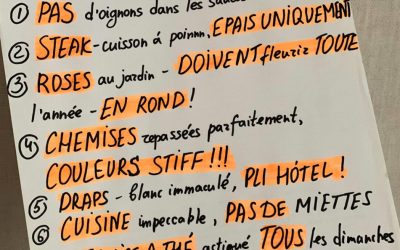 ① PAS d'oignons dans les
② STEAK - cuisson à poinnn, EPAIS UNIQUEMENT
③ ROSES au jardin - DOIVENT fleurir TOUTE
l'année - EN ROND !
④ CHEMISES repassées parfaitement,
COULEURS STIFF !!!
⑤ DRAPS - blanc immaculé, PLI HÓTEL !
⑥ CUISINE impeccable, PAS DE MIETTES
À THÉ astiqué TOUS les dimanches